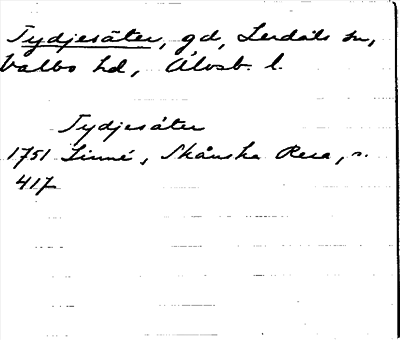 Tydjesäter, gd, Lerdals sn,
Valbo hd, Älvsb. l.
Tydjesäter
1751 Linné, Skånska Resa, s.
417